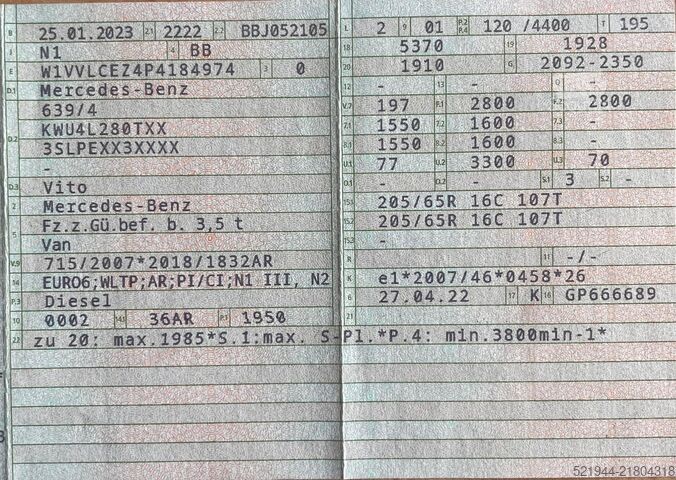 B 25.01.2023 2.1 2222 2.2 BBJ052105
J N1 4 BB
E W1VVLCEZ4P4184974 3 0
D.1 Mercedes-Benz
639/4
D.2 KWU4L280TXX
3SLPEXX3XXXX
-
D.3 Vito
2 Mercedes-Benz
5 Fz.z.Gü.bef. b. 3,5 t
Van
V.9 715/2007*2018/1832AR
14 EURO6;WLTP;AR;PI/CI;N1 III, N2
P.3 Diesel
10 0002 14.1 36AR P.1 1950
22 zu 20: max.1985*S.1:max. S-Pl.*P.4: min.3800min-1*
L 2 9 01 P.2 P.4 120 /4400 T 195
18 5370 19 1928
20 1910 G 2092-2350
12 - 13 - Q -
V.7 197 F.1 2800 F.2 2800
7.1 1550 7.2 1600 7.3 -
8.1 1550 8.2 1600 8.3 -
U.1 77 U.2 3300 U.3 70
O.1 - O.2 - S.1 3 S.2 -
15.1 205/65R 16C 107T
15.2 205/65R 16C 107T
15.3 -
R 11 -/-
K e1*2007/46*0458*26
6 27.04.22 17 K 16 GP666689
21
521944-21804318